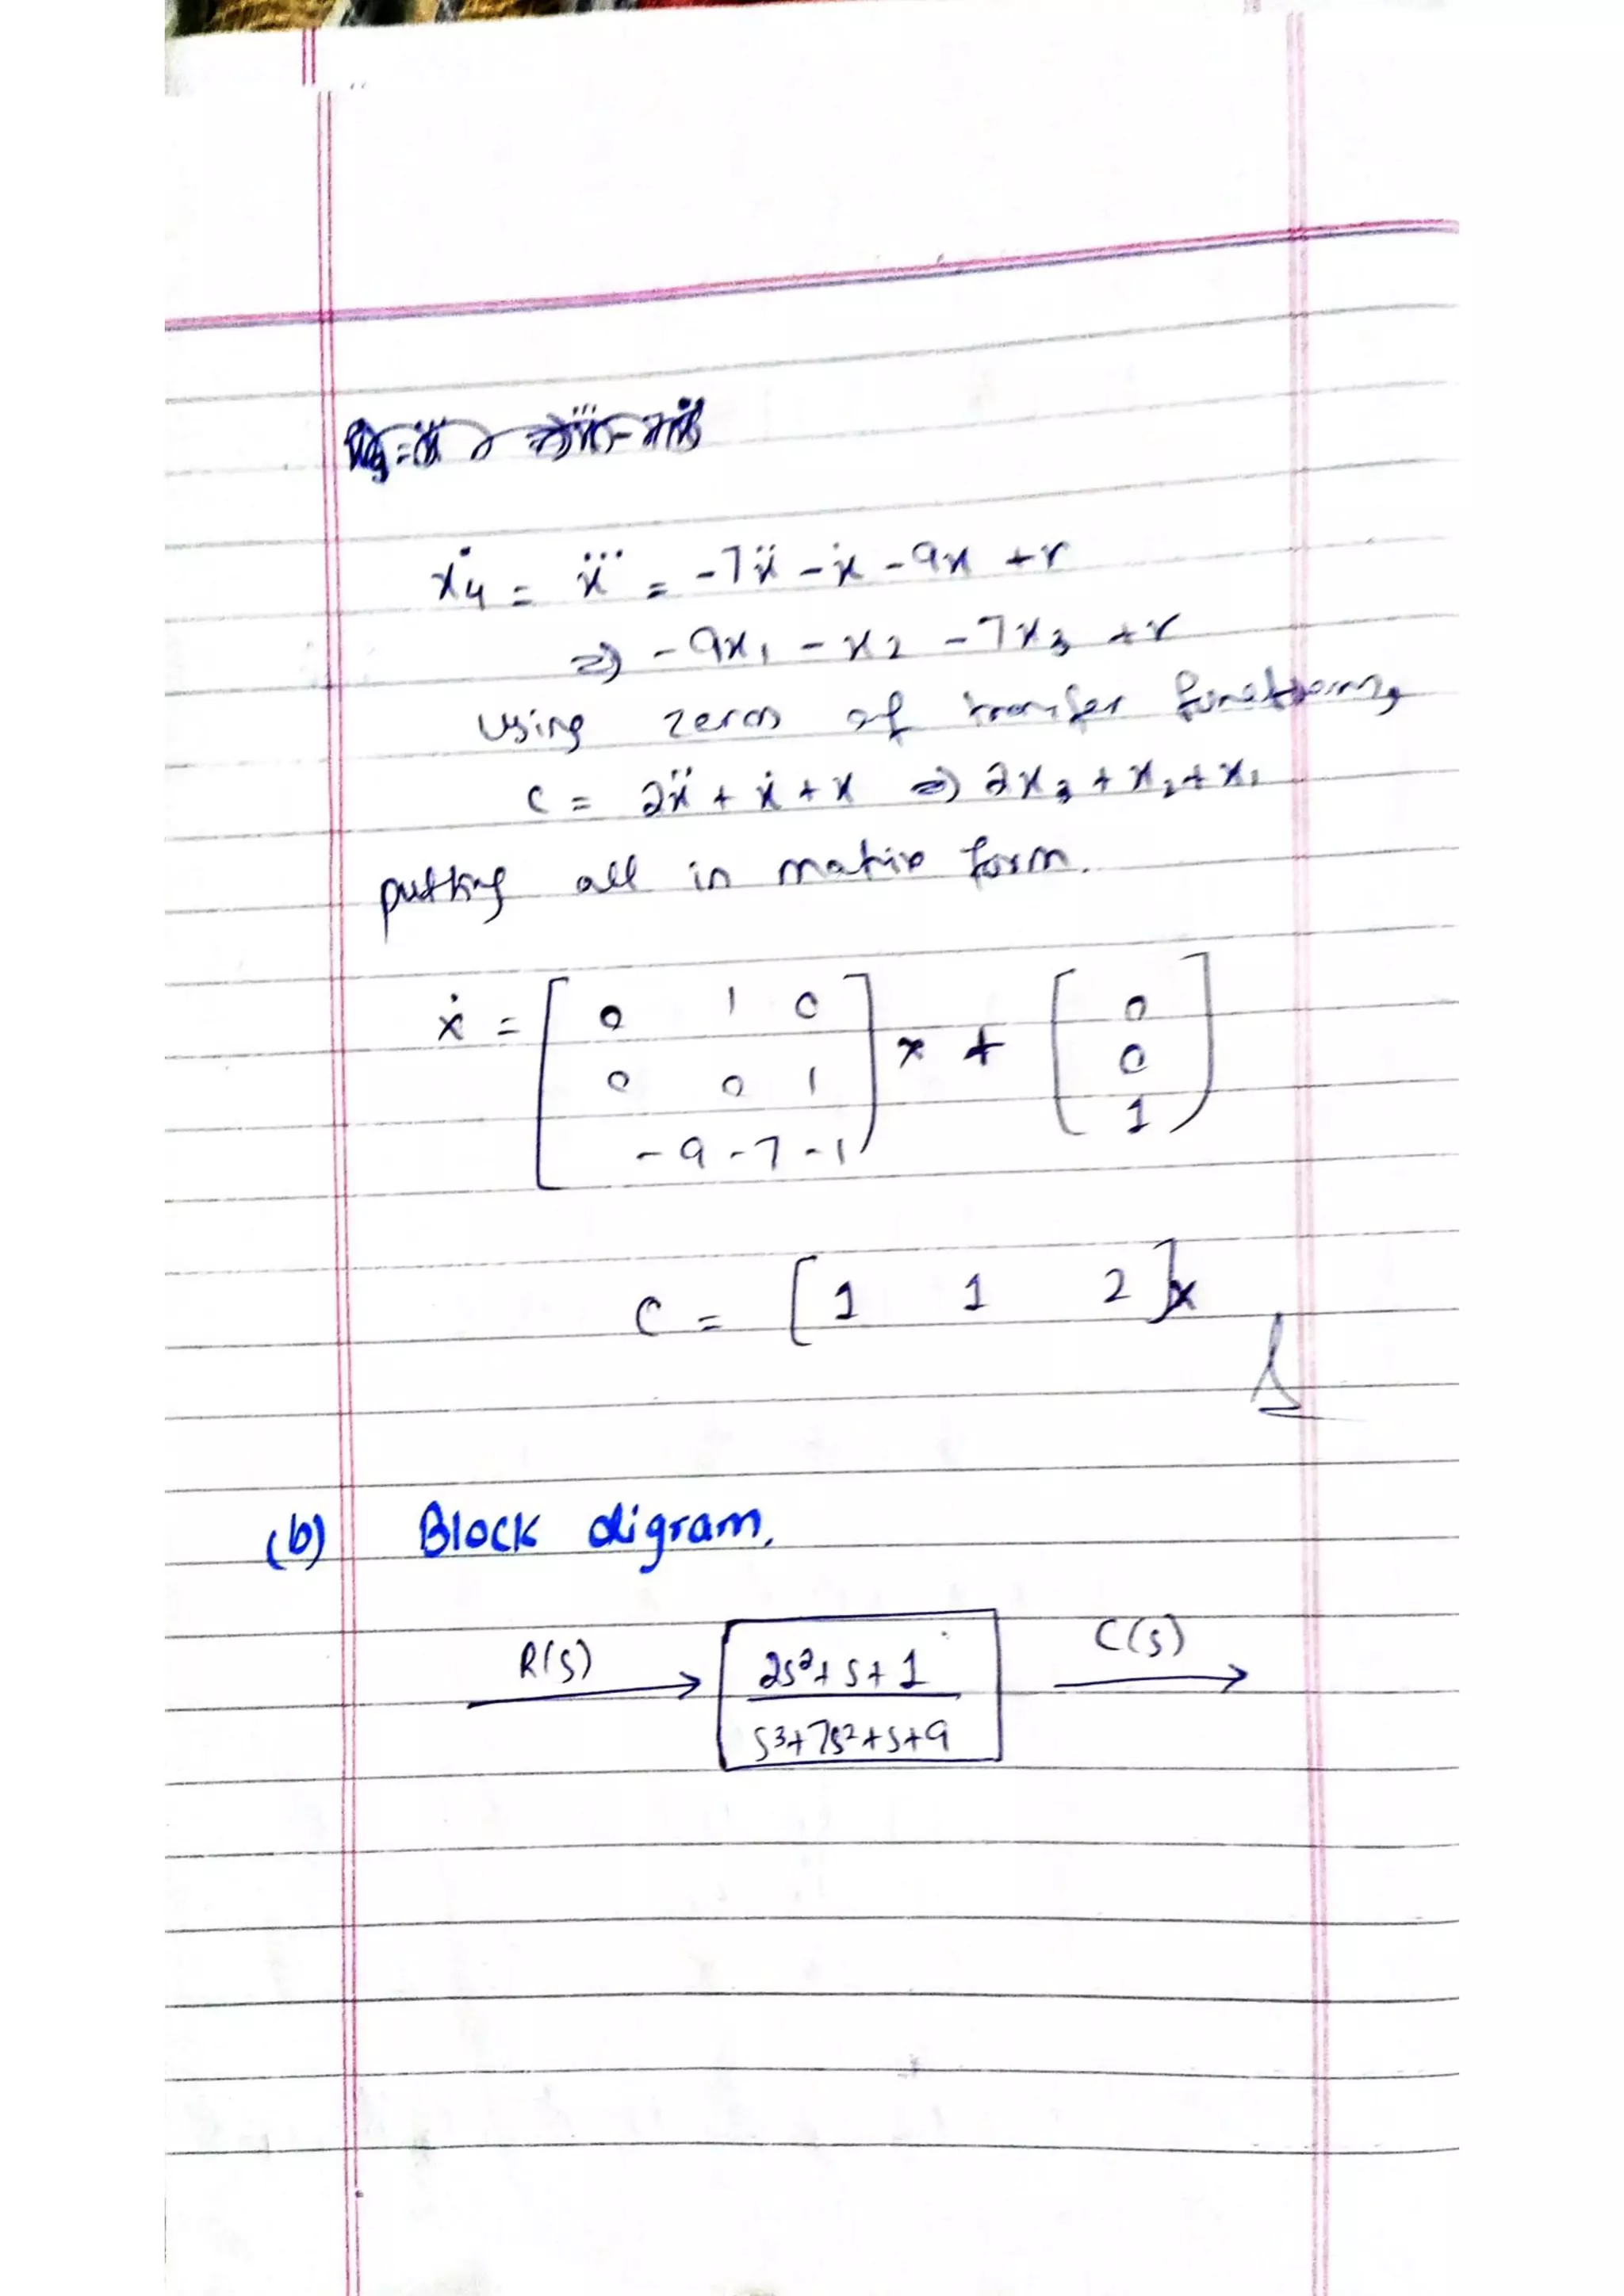 ẋ4 = x⃛ = -7ẍ - ẋ - 9x + r
⇒ -9x1 - x2 - 7x3 + r
Using zeros of transfer functions,
C = 2ẍ + ẋ + x ⇒ 2x3 + x2 + x1
putting all in matrix form.
ẋ = [ 0 1 0 ] x + [ 0 ]
0 0 1 0
-9 -7 -1 1
C = [ 1 1 2 ] x
(b) Block digram.
R(s) 2s²+s+1 C(s)
s³+7s²+s+9